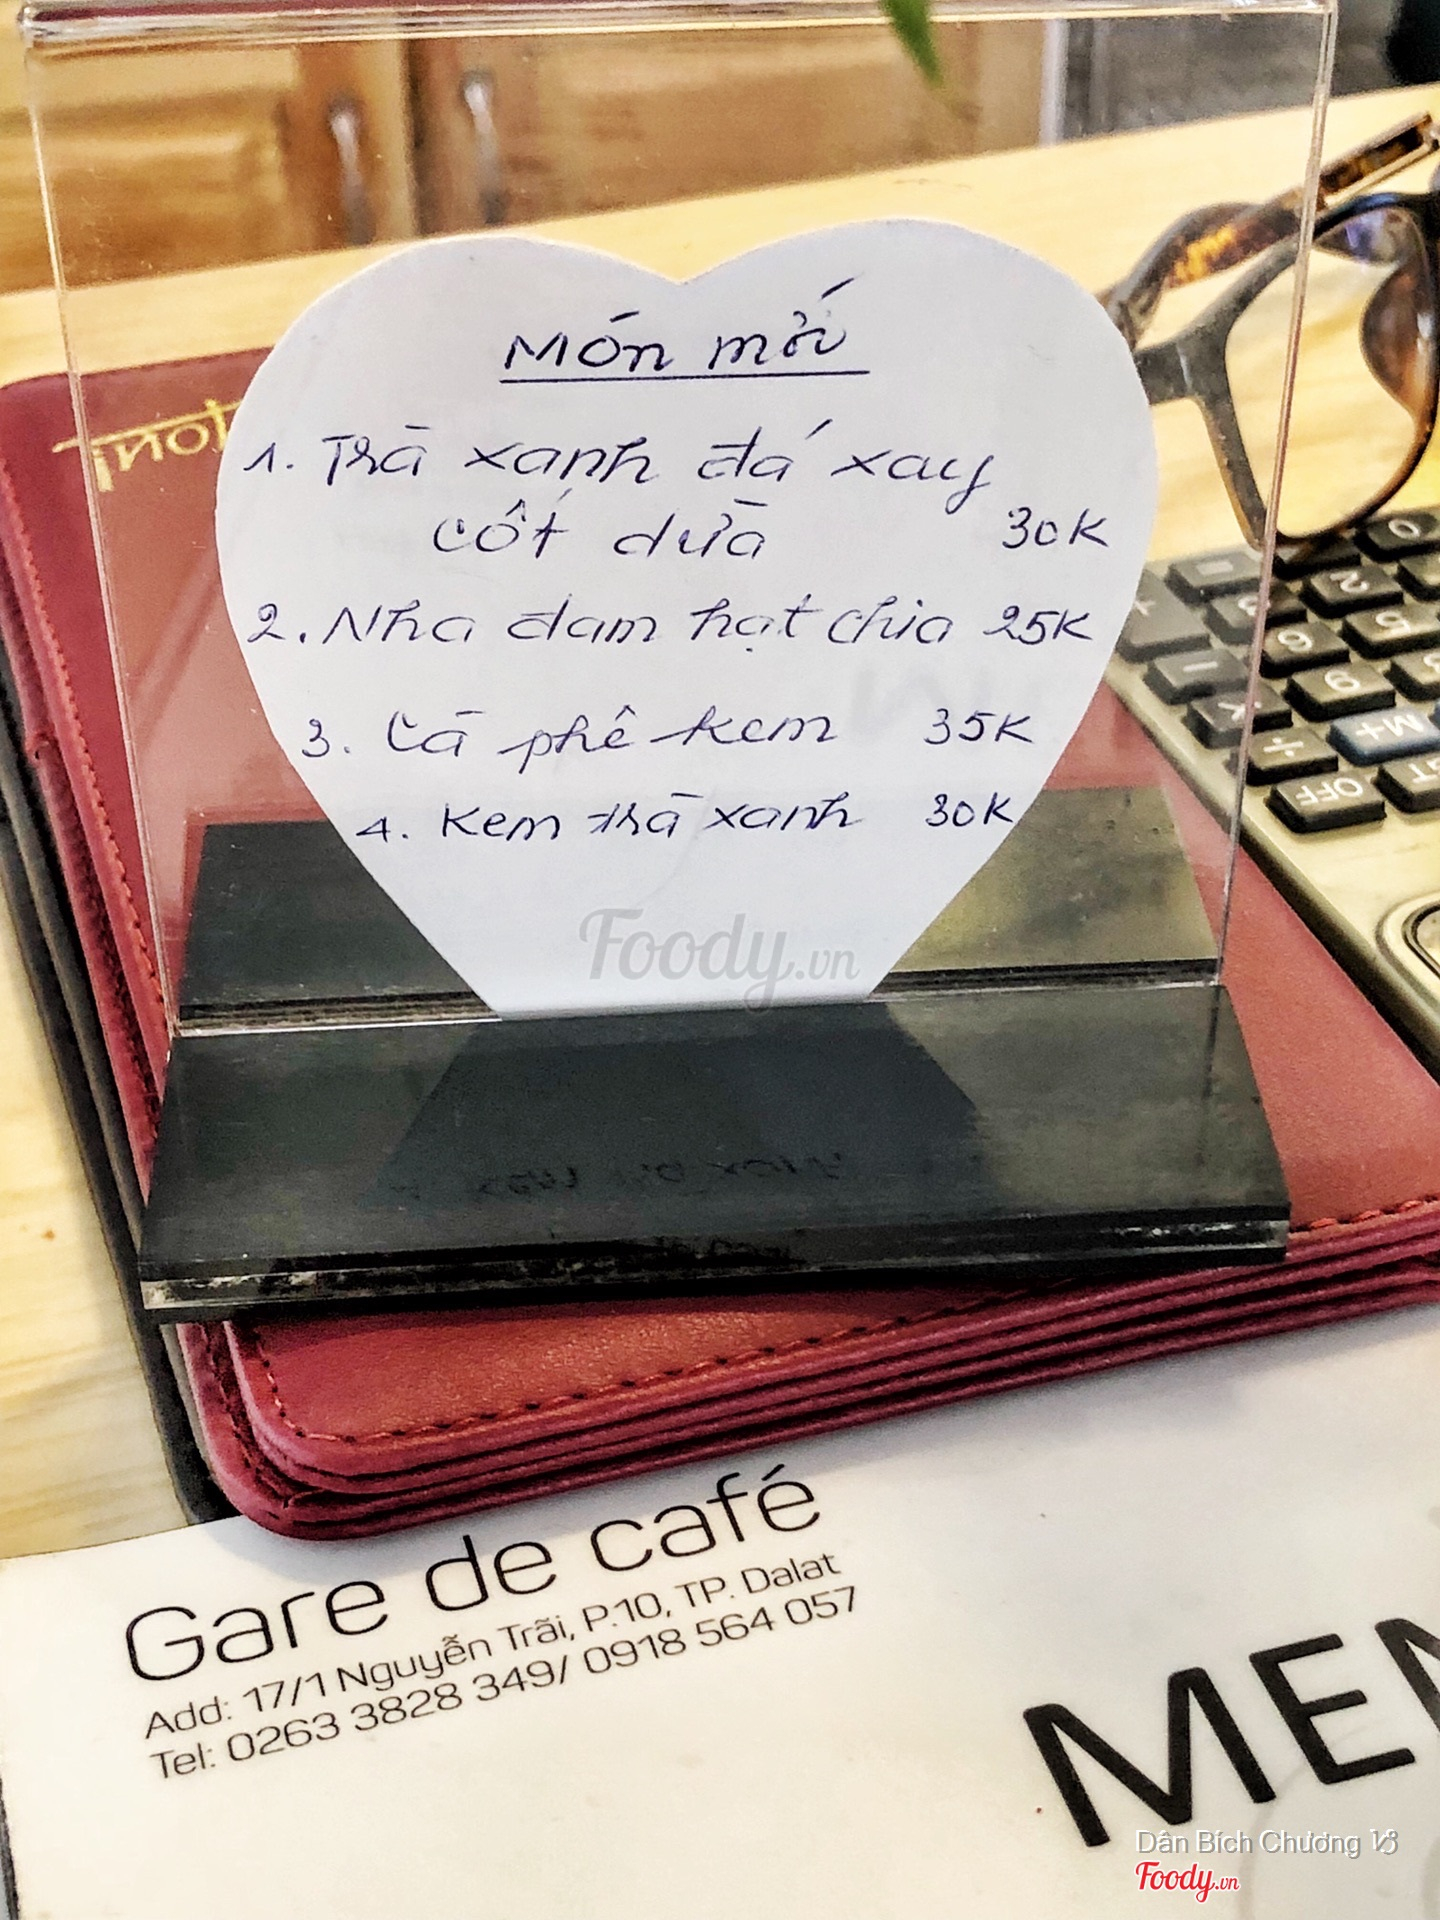 Món mới
1. Trà xanh đá xay
cốt dừa 30K
2. Nha đam hạt chia 25K
3. Cà phê kem 35K
4. Kem trà xanh 30K
Foody.vn
Gare de café
Add: 17/1 Nguyễn Trãi, P.10, TP. Dalat
Tel: 0263 3828 349/ 0918 564 057
MEN
Dân Bích Chương
Foody.vn